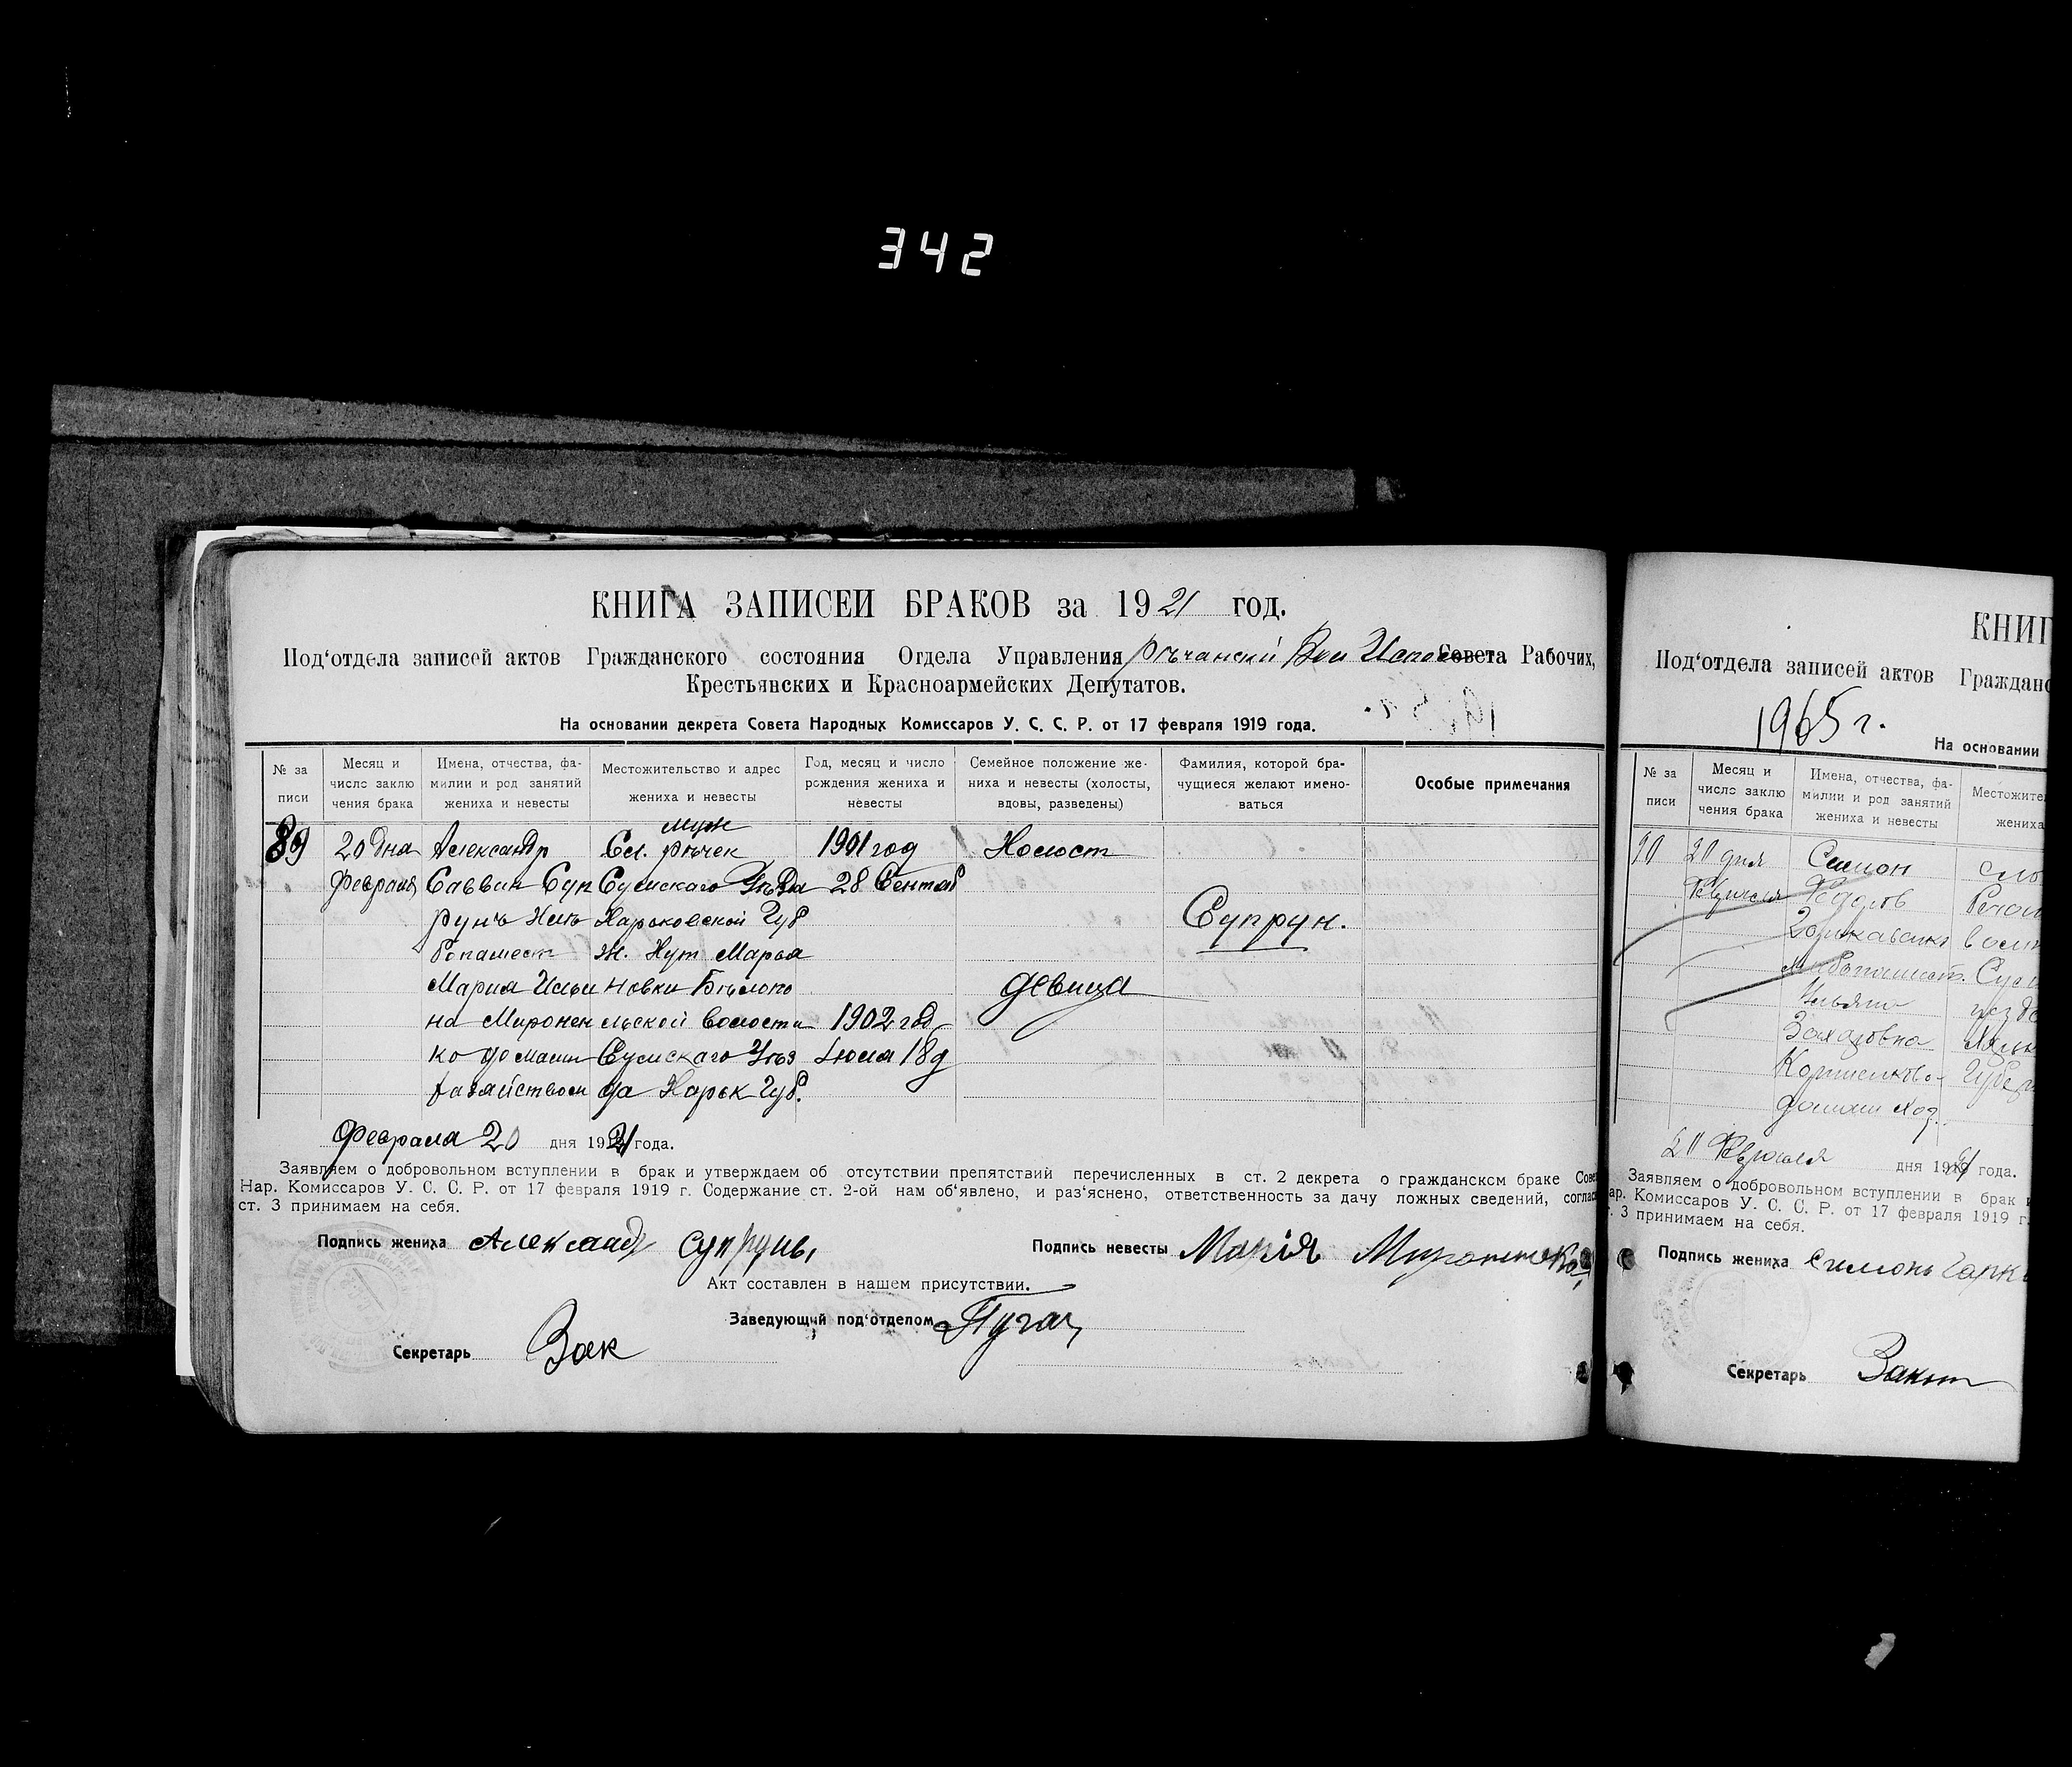 342
КНИГА ЗАПИСЕЙ БРАКОВ за 1921 год.
Под‘отдела записей актов Гражданского состояния Отдела Управления Рѣчанский Вол Испо Совета Рабочих,
Крестьянских и Красноармейских Депутатов.
На основании декрета Совета Народных Комиссаров У. С. С. Р. от 17 февраля 1919 года.
№ записи
Месяц и число заключения брака
Имена, отчества, фамилии и род занятий жениха и невесты
Местожительство и адрес жениха и невесты
Год, месяц и число рождения жениха и невесты
Семейное положение жениха и невесты (холосты, вдовы, разведены)
Фамилия, которой брачущиеся желают именоваться
Особые примечания
муж
89 20 дня Александр Сл. Рѣчек 1901 год Холост
Февраля Саввин Суп Сумскаго Уѣзда 28 Сентяб
рунъ Хлѣ Харьковской Губ Супрун.
бопашест ж. Хут Марья
Мария Ильи новки Бѣлопо девица
на Миронен льской волости 1902 год
ко домаши Сумскаго Уѣз Июля 18 д
хазяйством да Харьк Губ.
Февраля 20 дня 1921 года.
Заявляем о добровольном вступлении в брак и утверждаем об отсутствии препятствий перечисленных в ст. 2 декрета о гражданском браке Сове
Нар. Комиссаров У. С. С. Р. от 17 февраля 1919 г. Содержание ст. 2-ой нам об‘явлено, и раз‘яснено, ответственность за дачу ложных сведений, соглас
ст. 3 принимаем на себя.
Подпись жениха Александр Супрунъ,
Подпись невесты Марія Мироненкова
Акт составлен в нашем присутствии.
Заведующий под‘отделом Пугач
Секретарь Зак
КНИГ
Под‘отдела записей актов Гражданс
1965 г.
На основании
№ записи
Месяц и число заключения брака
Имена, отчества, фамилии и род занятий жениха и невесты
Местожител
жениха
90 20 дня Симон сло
Февраля Федотов
волн
Сум
Ульяна уезда
Захаровна
Губер
домаш хоз.
20 Февраля дня 1921 года.
Заявляем о добровольном вступлении в брак и
ар. Комиссаров У. С. С. Р. от 17 февраля 1919 г.
т. 3 принимаем на себя.
Подпись жениха Симонъ
Секретарь